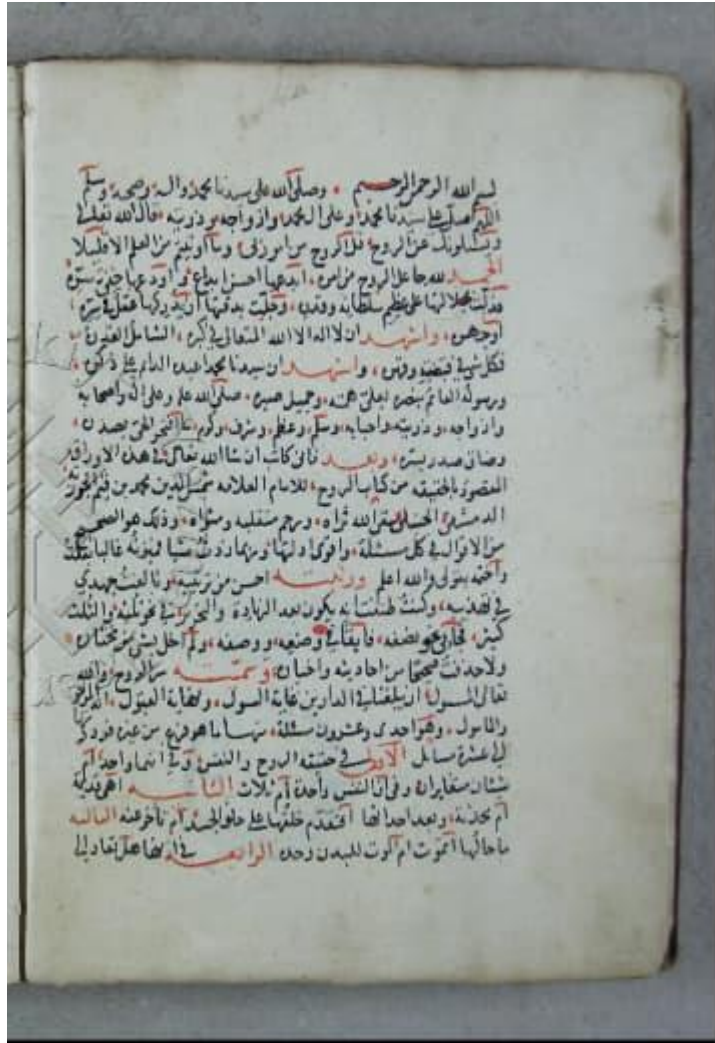 بسم الله الرحمن الرحيم وصلى الله على سيدنا محمد واله وصحبه وسلم
اللهم صل على سيدنا محمد وعلى ال محمد وازواجه وذريته قال الله تعالى
ويسئلونك عن الروح قل الروح من امر ربى وما اوتيتم من العلم الا قليلا
الحمد لله جاعل الروح من امره ابدعها احسن ابداع واودعها
على عظيم سلطانه وقدره
واشهد ان لا اله الا الله المتعالى فى كبره الشامل
فكل شى فى قبضته وقهره واشهد ان سيدنا محمدا عبده
ورسوله وجميل صبره صلى الله عليه وعلى اله واصحابه
وازواجه وذريته واحبابه وسلم وعظم وشرف وكرم
وبعد فانى كاتب ان شا الله تعالى فى هذه الاوراق
المقصود بالحقيقه من كتاب الروح للامام العلامه شمس الدين محمد بن قيم الجوزية
الدمشقى الحنبلى سقى الله ثراه ورحم منقلبه ومثواه وذلك هو الصحيح
من الاقوال فى كل مسئلة واقوى ادلتها ومهما زدت شيا ميزته غالبا بقلت
واخره بقولى والله اعلم ورتبته احسن من ترتيبه وبالغت جهدى
فى تهذيبه وكنت ظننت انه يكون بعد الزيادة والتحرير فى نحو ثلثيه والثلث
كثير فجا فى نحو نصفه ووصفه ولم اخل بشى من مختاره
ولا حذفت صحيحا من احاديثه واخباره وسميته سر الروح والله
تعالى المسول ان يبلغنا فى الدارين غاية السول ونهاية القبول
والمامول وهو احدى وعشرون مسئلة منها ما هو فرع من غيره
فى عشرة مسائل الاولى فى حقيقة الروح والنفس وفى انهما واحد ام
شيئان متغايران وفى ان النفس واحدة ام ثلاث الثانيه اهى قديمة
ام محدثة وبعد احداثها اتقدم خلقها على خلق الجسد ام تاخر عنه الثالثه
ما حالها اتموت ام الموت للبدن وحده الرابعه